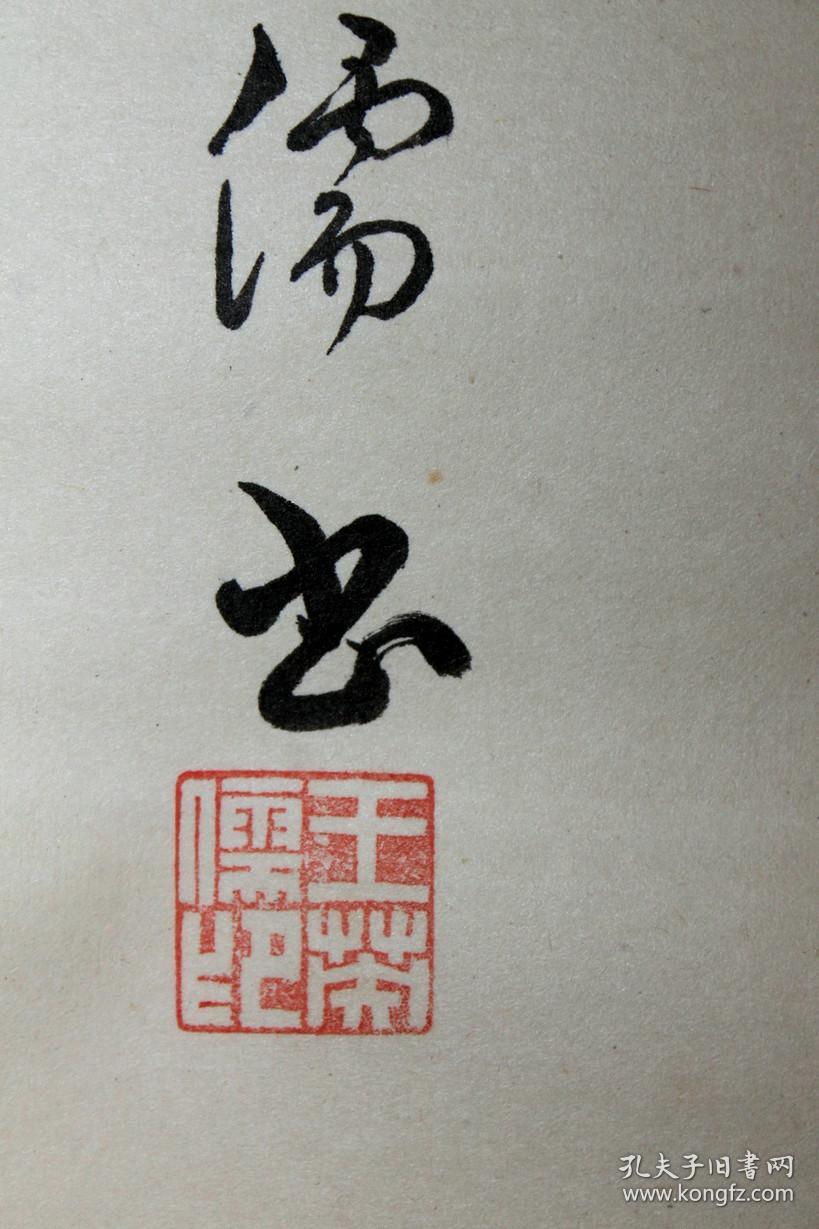 儒书
王荣
儒印
孔夫子旧书网
www.kongfz.com